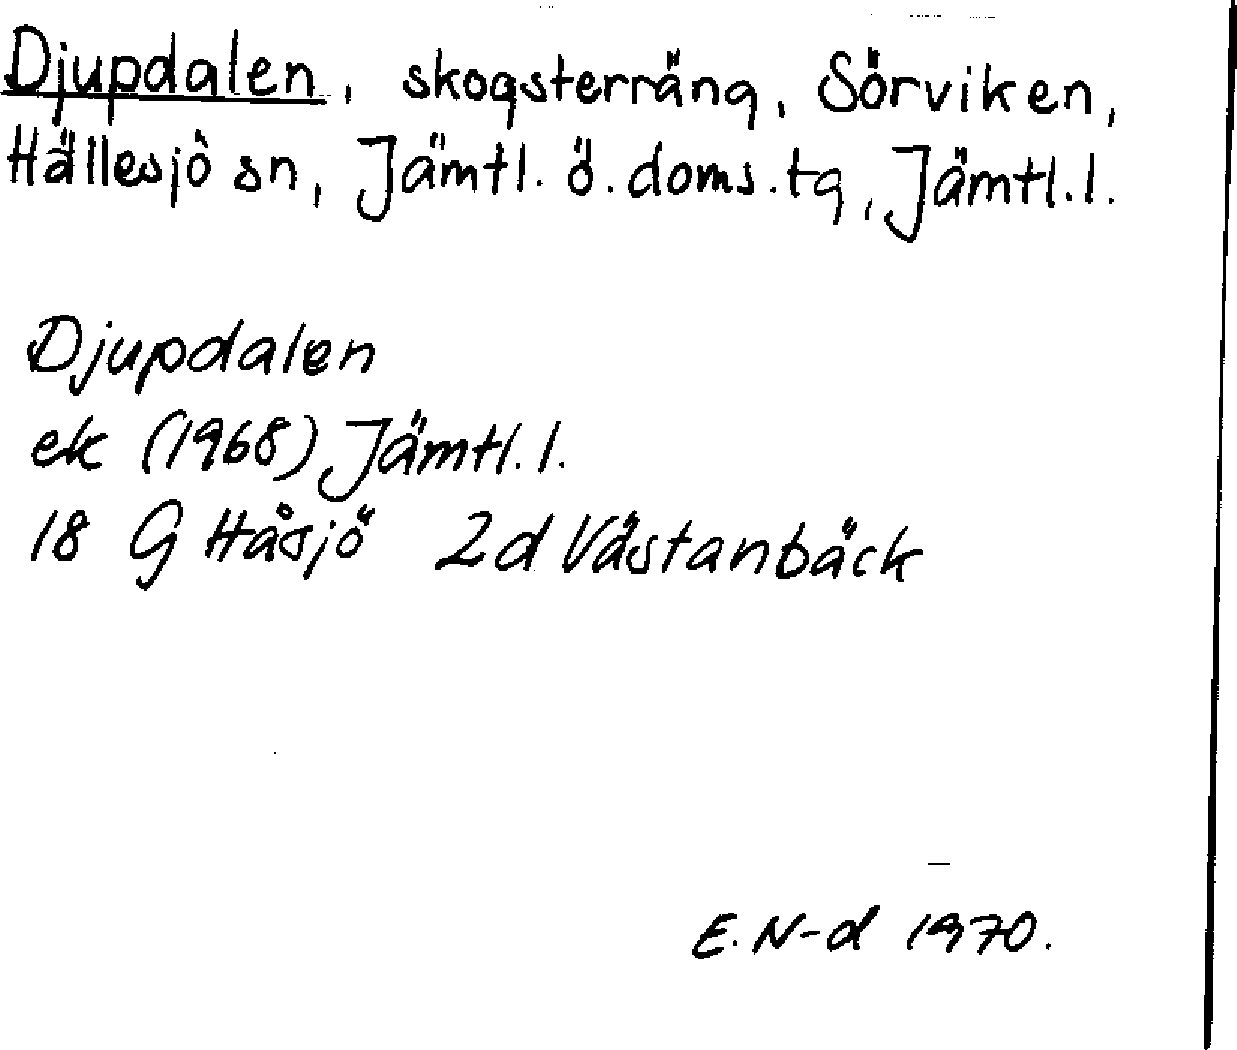 Djupdalen, skogsterräng, Sörviken,
Hällesjö sn, Jämtl. ö. doms.tg, Jämtl.l.
Djupdalen
ek (1968) Jämtl.l.
18 G Håsjö 2d Västanbäck
E. N-d 1970.